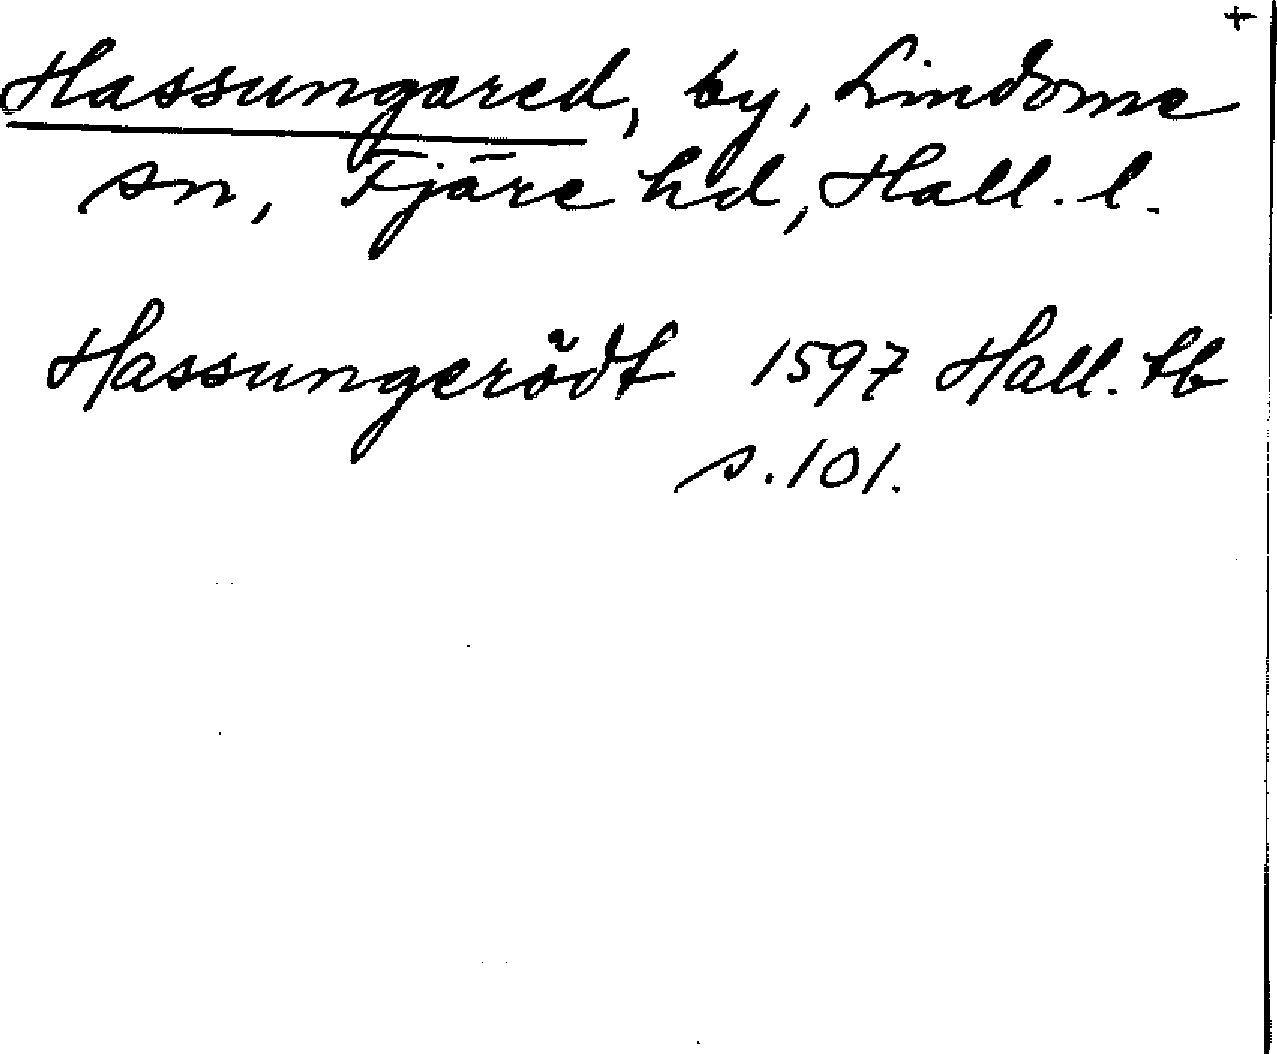 +
Hassungared, by, Lindome
sn, Fjäre hd, Hall. l.
Hassungerödt 1597 Hall. tb
s. 101.